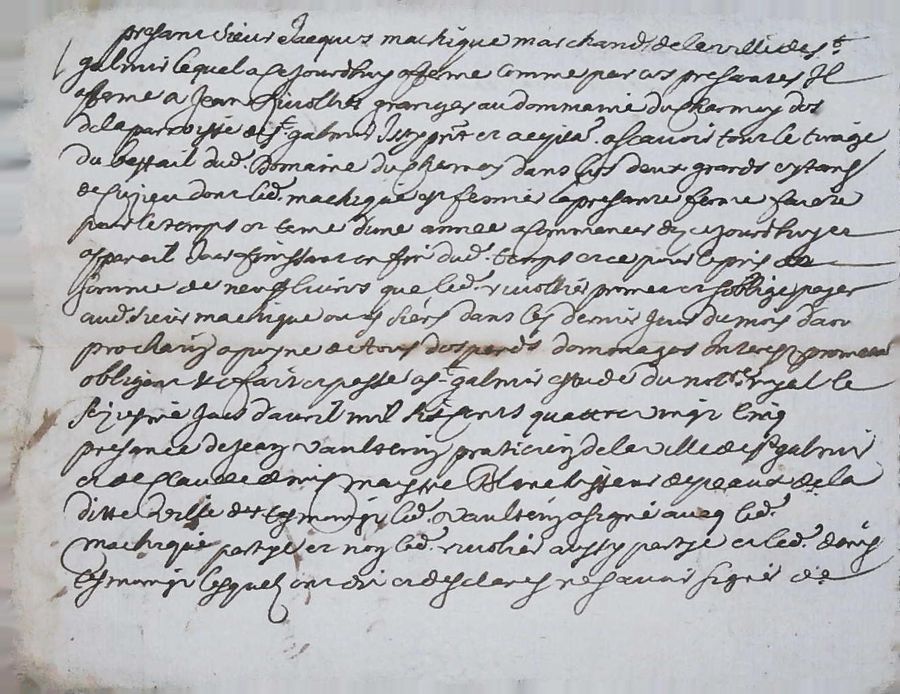 presant sieur Jacques machique marchand de la ville de st
galmier lequel a cejourdhuy afferme comme par ces presantes Il
afferme a Jean rivollier granger au dommaine du charmay
de la parroisse de st galmier Icy pnt et acceptant ascavoir tout le
du bestail dud. Domaine du dans les deux grands estangs
de dont led. machique est fermier la presante ferme faicte
pour le temps et terme d'une annee a commencer de cejourdhuy et
a pareil Jour finissant en fin dud. temps et ce pour le pris et
somme de neuf livres que led. rivollier promet et soblige payer
aud. sieur machique ou es siens dans le dernier Jour du mois daou
prochain a peyne de tous despens dommages Interestz promett
obligent &c fait et passe a st galmier estude du nore royal le
Jour dauril mil six cents quattre vingt cinq
presance de Jean vaultrin praticien de la ville de st galmier
et de Claude denis maystre Blanchisseur de peaux de la
ditte ville tesmoingz led. vaultrin a signé aveq led.
machique partye et non led. rivolier aussy partye et led. denis
tesmoingz lesquelz ont dit et desclarer ne scavoir signer de